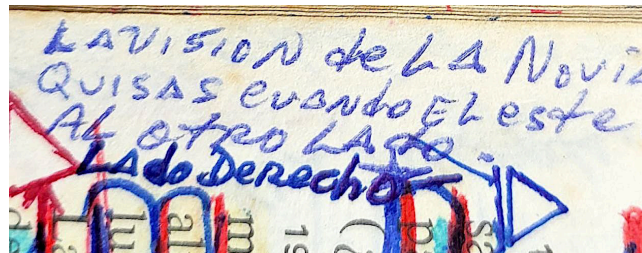 LA VISION de LA NOVI
QUISAS CUANDO EL este
AL OTRO LADO.
LAdo DERECHO